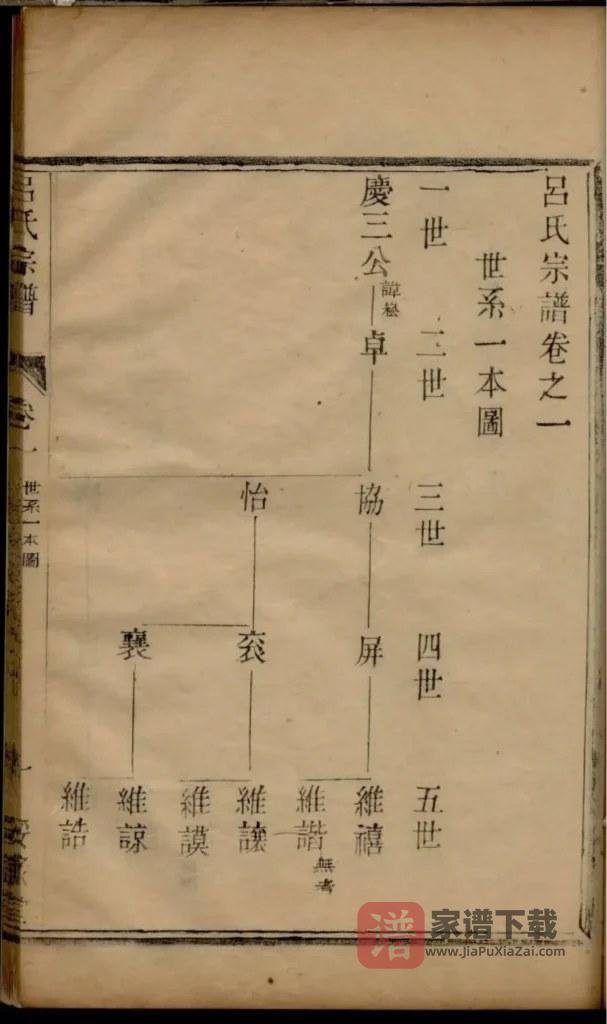 呂氏宗譜卷之一
世系一本圖
一世 二世 三世 四世 五世
慶三公 諱崧 卓 協 屏 維禧
維諧 無考
怡 衮 維讓
維謨
襄 維諒
維誥
呂氏宗譜 卷一 世系一本圖 一
谱 家谱下载
www.JiaPuXiaZai.com